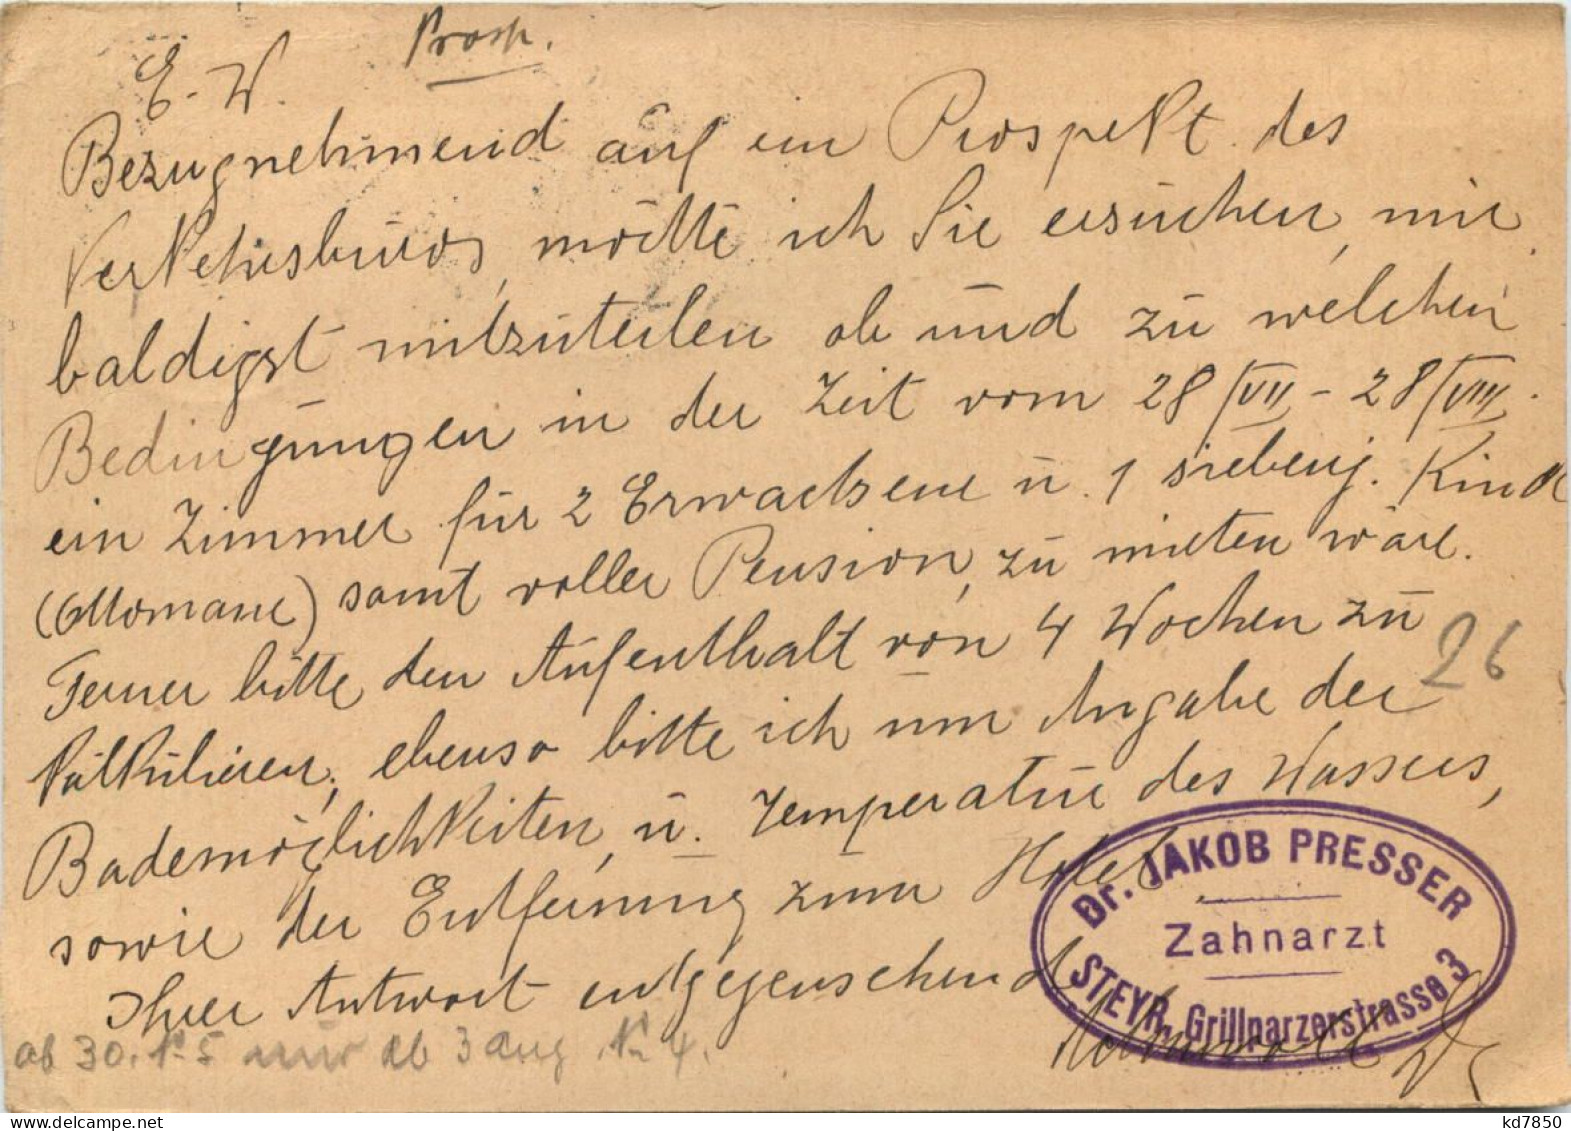 Prosp.
E. W.
Bezugnehmend auf ein Prospekt des
Verkehrsbüros, möchte ich Sie ersuchen, mir
baldigst mitzuteilen ob und zu welchen
Bedingungen in der Zeit vom 28/VII - 28/VIII.
ein Zimmer für 2 Erwachsene u. 1 siebenj. Kind
(Ottomane) samt voller Pension, zu mieten wäre.
Ferner bitte den Aufenthalt von 4 Wochen zu
26
kalkulieren, ebenso bitte ich um Angabe der
Bademöglichkeiten, u. Temperatur des Wassers,
sowie der Entfernung zum Hotel
Ihrer Antwort entgegensehend
Dr. JAKOB PRESSER
Zahnarzt
STEYR, Grillparzerstrasse 3
ab 30. No 5 nur ab 3 Aug No 4.
kd7850